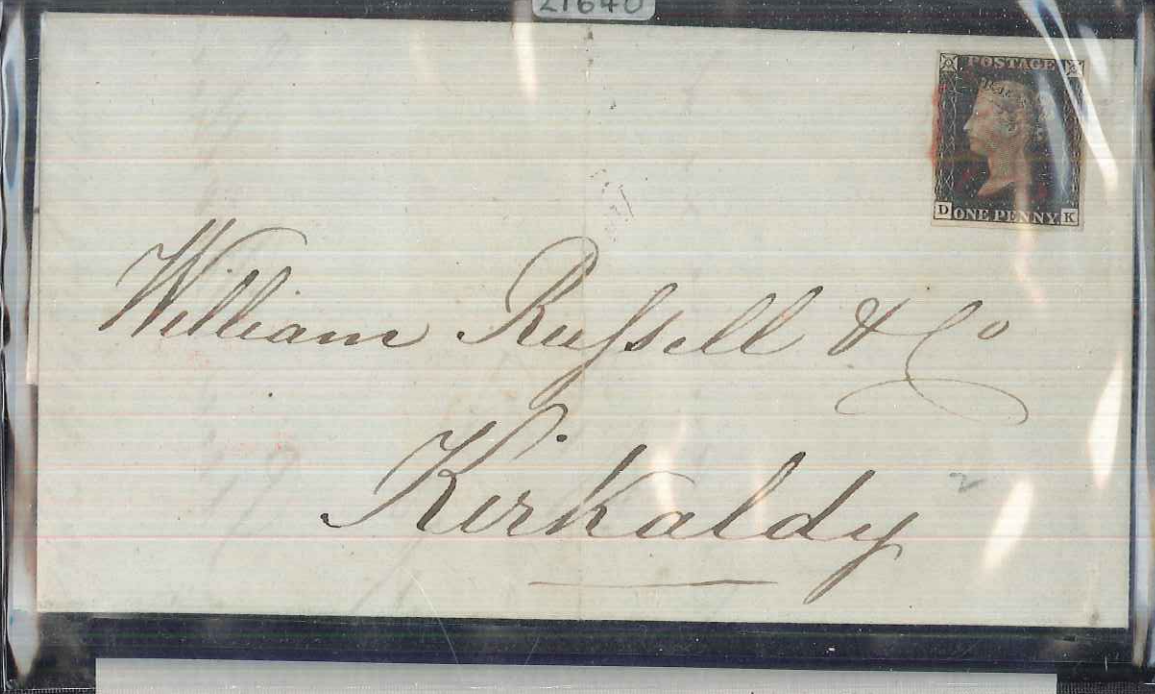 21640
POSTAGE
D ONE PENNY K
William Russell & Co
Kirkaldy